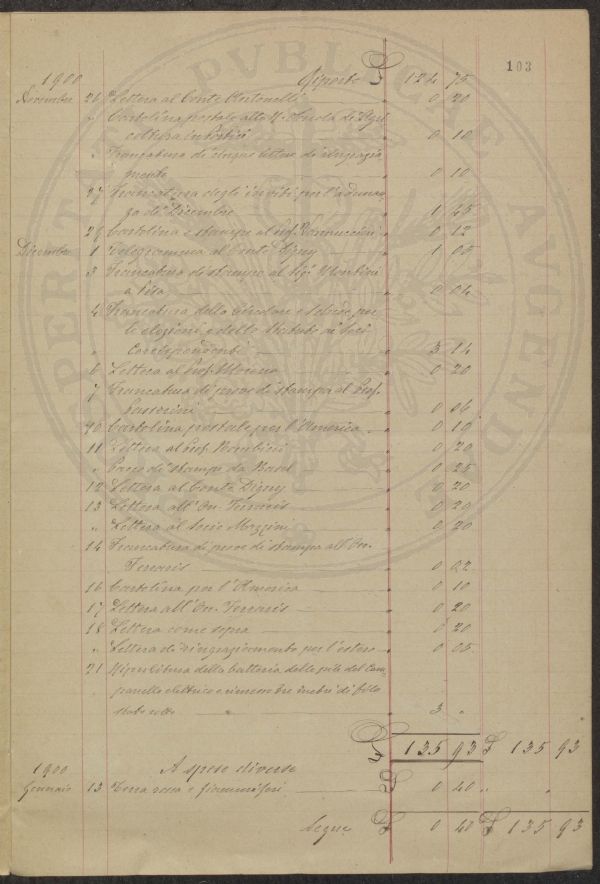 103
1900 Riporto £ 124 75
Novembre 26 Lettera al Conte Antonelli " 0 20
" Cartolina postale alla R. Scuola di Agri
coltura in Portici " 0 10
" Francatura di cinque lettere di ringrazia
mento " 0 10
27 Francatura degli inviti per l'adunan
za di Dicembre " 1 45
28 Cartolina e stampe al Prof. Vannuccini " 0 12
Dicembre 1 Telegramma al Conte Digny " 1 05
3 Francatura di stampe al Sig.
a Pisa " 0 04
4 Francatura della Circolare e Schede per
le elezioni e dello Statuto ai Soci
Corrispondenti " 3 14
6 Lettera al Prof. " 0 20
7 Francatura di prove di stampa al Prof.
Passerini " 0 06
10 Cartolina postale per l'America " 0 10
11 Lettera al Prof. Bombicci " 0 20
" di stampe da " 0 25
12 Lettera al Conte Digny " 0 20
13 Lettera all'On. Ferraris " 0 20
" Lettera al Socio Mazzini " 0 20
14 Francatura di prove di stampa all'On.
Ferraris " 0 02
16 Cartolina per l'America " 0 10
17 Lettera all'On. Ferraris " 0 20
18 Lettera come sopra " 0 20
" Lettera di ringraziamento per l'estero " 0 05
21 Ripulitura della batteria delle pile del Cam
panello elettrico e rimettere metri di filo
" 3 "
£ 135 93 £ 135 93
1900 A spese diverse
Gennaio 13 Terra rossa e fiammiferi £ 0 40 " "
Segue £ 0 40 £ 135 93